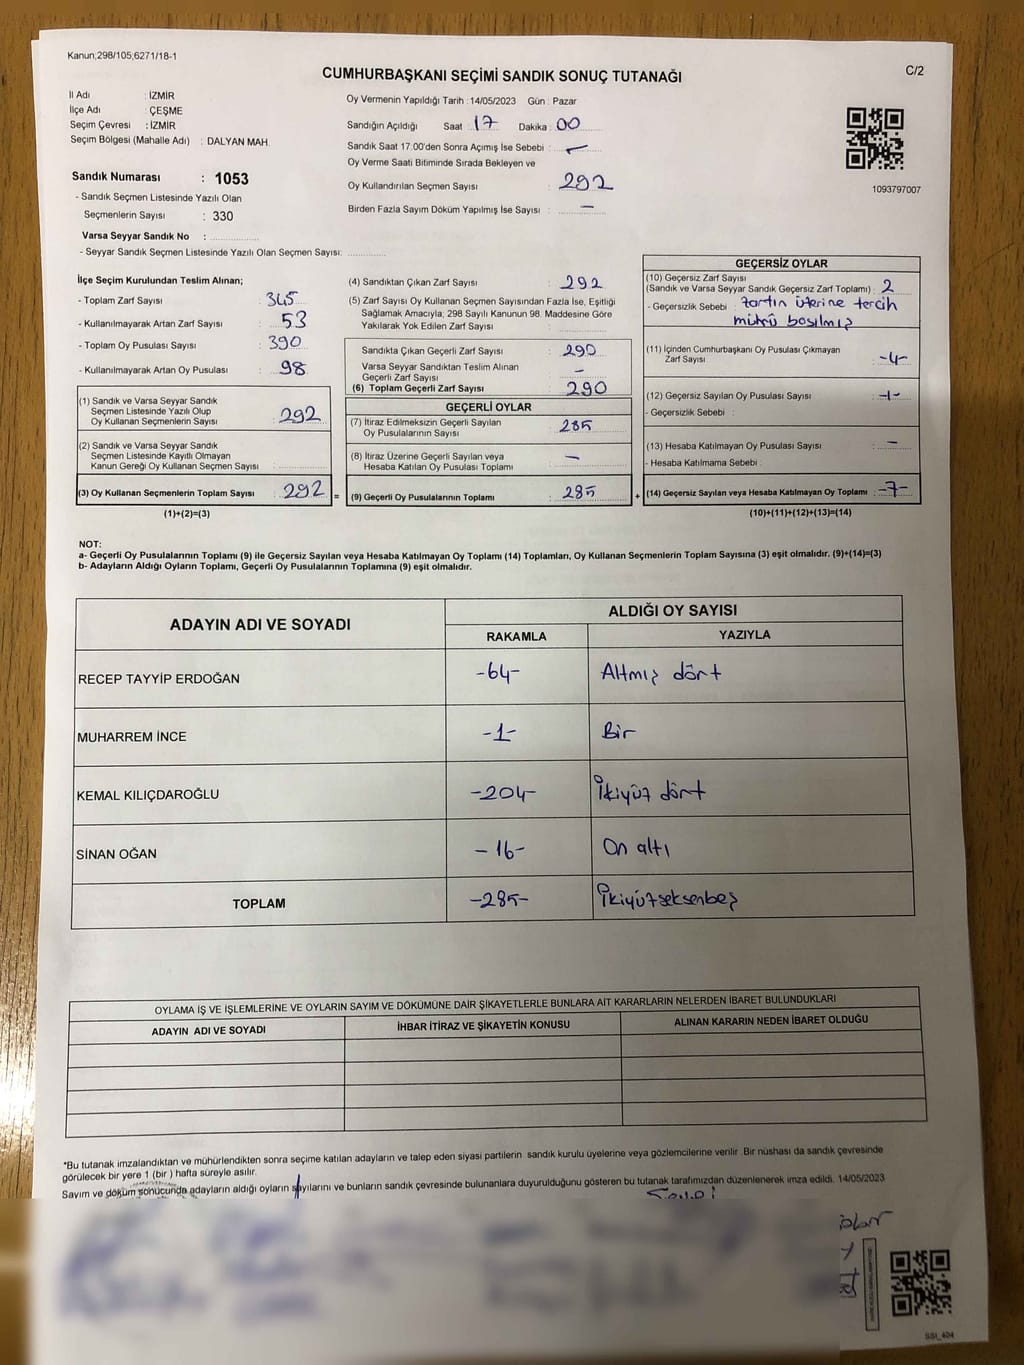 Kanun;298/105;6271/18-1
CUMHURBAŞKANI SEÇİMİ SANDIK SONUÇ TUTANAĞI
C/2
İl Adı : İZMİR
İlçe Adı : ÇEŞME
Seçim Çevresi : İZMİR
Seçim Bölgesi (Mahalle Adı) : DALYAN MAH.
Sandık Numarası : 1053
- Sandık Seçmen Listesinde Yazılı Olan
Seçmenlerin Sayısı : 330
Varsa Seyyar Sandık No :
- Seyyar Sandık Seçmen Listesinde Yazılı Olan Seçmen Sayısı:
Oy Vermenin Yapıldığı Tarih : 14/05/2023 Gün : Pazar
Sandığın Açıldığı Saat : 17 Dakika : 00
Sandık Saat 17.00'den Sonra Açımış İse Sebebi : -
Oy Verme Saati Bitiminde Sırada Bekleyen ve
Oy Kullandırılan Seçmen Sayısı : 292
Birden Fazla Sayım Döküm Yapılmış İse Sayısı : -
1093797007
İlçe Seçim Kurulundan Teslim Alınan;
- Toplam Zarf Sayısı : 345
- Kullanılmayarak Artan Zarf Sayısı : 53
- Toplam Oy Pusulası Sayısı : 390
- Kullanılmayarak Artan Oy Pusulası : 98
(1) Sandık ve Varsa Seyyar Sandık
Seçmen Listesinde Yazılı Olup
Oy Kullanan Seçmenlerin Sayısı : 292
(2) Sandık ve Varsa Seyyar Sandık
Seçmen Listesinde Kayıtlı Olmayan
Kanun Gereği Oy Kullanan Seçmen Sayısı :
(3) Oy Kullanan Seçmenlerin Toplam Sayısı : 292 =
(1)+(2)=(3)
(4) Sandıktan Çıkan Zarf Sayısı : 292
(5) Zarf Sayısı Oy Kullanan Seçmen Sayısından Fazla İse, Eşitliği
Sağlamak Amacıyla, 298 Sayılı Kanunun 98. Maddesine Göre
Yakılarak Yok Edilen Zarf Sayısı :
Sandıkta Çıkan Geçerli Zarf Sayısı : 290
Varsa Seyyar Sandıktan Teslim Alınan
Geçerli Zarf Sayısı : -
(6) Toplam Geçerli Zarf Sayısı : 290
GEÇERLİ OYLAR
(7) İtiraz Edilmeksizin Geçerli Sayılan
Oy Pusulalarının Sayısı : 285
(8) İtiraz Üzerine Geçerli Sayılan veya
Hesaba Katılan Oy Pusulası Toplamı : -
(9) Geçerli Oy Pusulalarının Toplamı : 285 +
GEÇERSİZ OYLAR
(10) Geçersiz Zarf Sayısı
(Sandık ve Varsa Seyyar Sandık Geçersiz Zarf Toplamı) : 2
- Geçersizlik Sebebi : Zarfın üzerine tercih
mührü basılmış
(11) İçinden Cumhurbaşkanı Oy Pusulası Çıkmayan
Zarf Sayısı : -4-
(12) Geçersiz Sayılan Oy Pusulası Sayısı : -1-
- Geçersizlik Sebebi :
(13) Hesaba Katılmayan Oy Pusulası Sayısı : -
- Hesaba Katılmama Sebebi :
(14) Geçersiz Sayılan veya Hesaba Katılmayan Oy Toplamı : -7-
(10)+(11)+(12)+(13)=(14)
NOT:
a- Geçerli Oy Pusulalarının Toplamı (9) ile Geçersiz Sayılan veya Hesaba Katılmayan Oy Toplamı (14) Toplamları, Oy Kullanan Seçmenlerin Toplam Sayısına (3) eşit olmalıdır. (9)+(14)=(3)
b- Adayların Aldığı Oyların Toplamı, Geçerli Oy Pusulalarının Toplamına (9) eşit olmalıdır.
ADAYIN ADI VE SOYADI
ALDIĞI OY SAYISI
RAKAMLA YAZIYLA
RECEP TAYYİP ERDOĞAN -64- Altmış dört
MUHARREM İNCE -1- Bir
KEMAL KILIÇDAROĞLU -204- İkiyüz dört
SİNAN OĞAN -16- On altı
TOPLAM -285- İkiyüzseksenbeş
OYLAMA İŞ VE İŞLEMLERİNE VE OYLARIN SAYIM VE DÖKÜMÜNE DAİR ŞİKAYETLERLE BUNLARA AİT KARARLARIN NELERDEN İBARET BULUNDUKLARI
ADAYIN ADI VE SOYADI İHBAR İTİRAZ VE ŞİKAYETİN KONUSU ALINAN KARARIN NEDEN İBARET OLDUĞU
*Bu tutanak imzalandıktan ve mühürlendikten sonra seçime katılan adayların ve talep eden siyasi partilerin sandık kurulu üyelerine veya gözlemcilerine verilir. Bir nüshası da sandık çevresinde
görülecek bir yere 1 (bir ) hafta süreyle asılır.
Sayım ve döküm sonucunda adayların aldığı oyların sayılarını ve bunların sandık çevresinde bulunanlara duyurulduğunu gösteren bu tutanak tarafımızdan düzenlenerek imza edildi. 14/05/2023
SSI_404